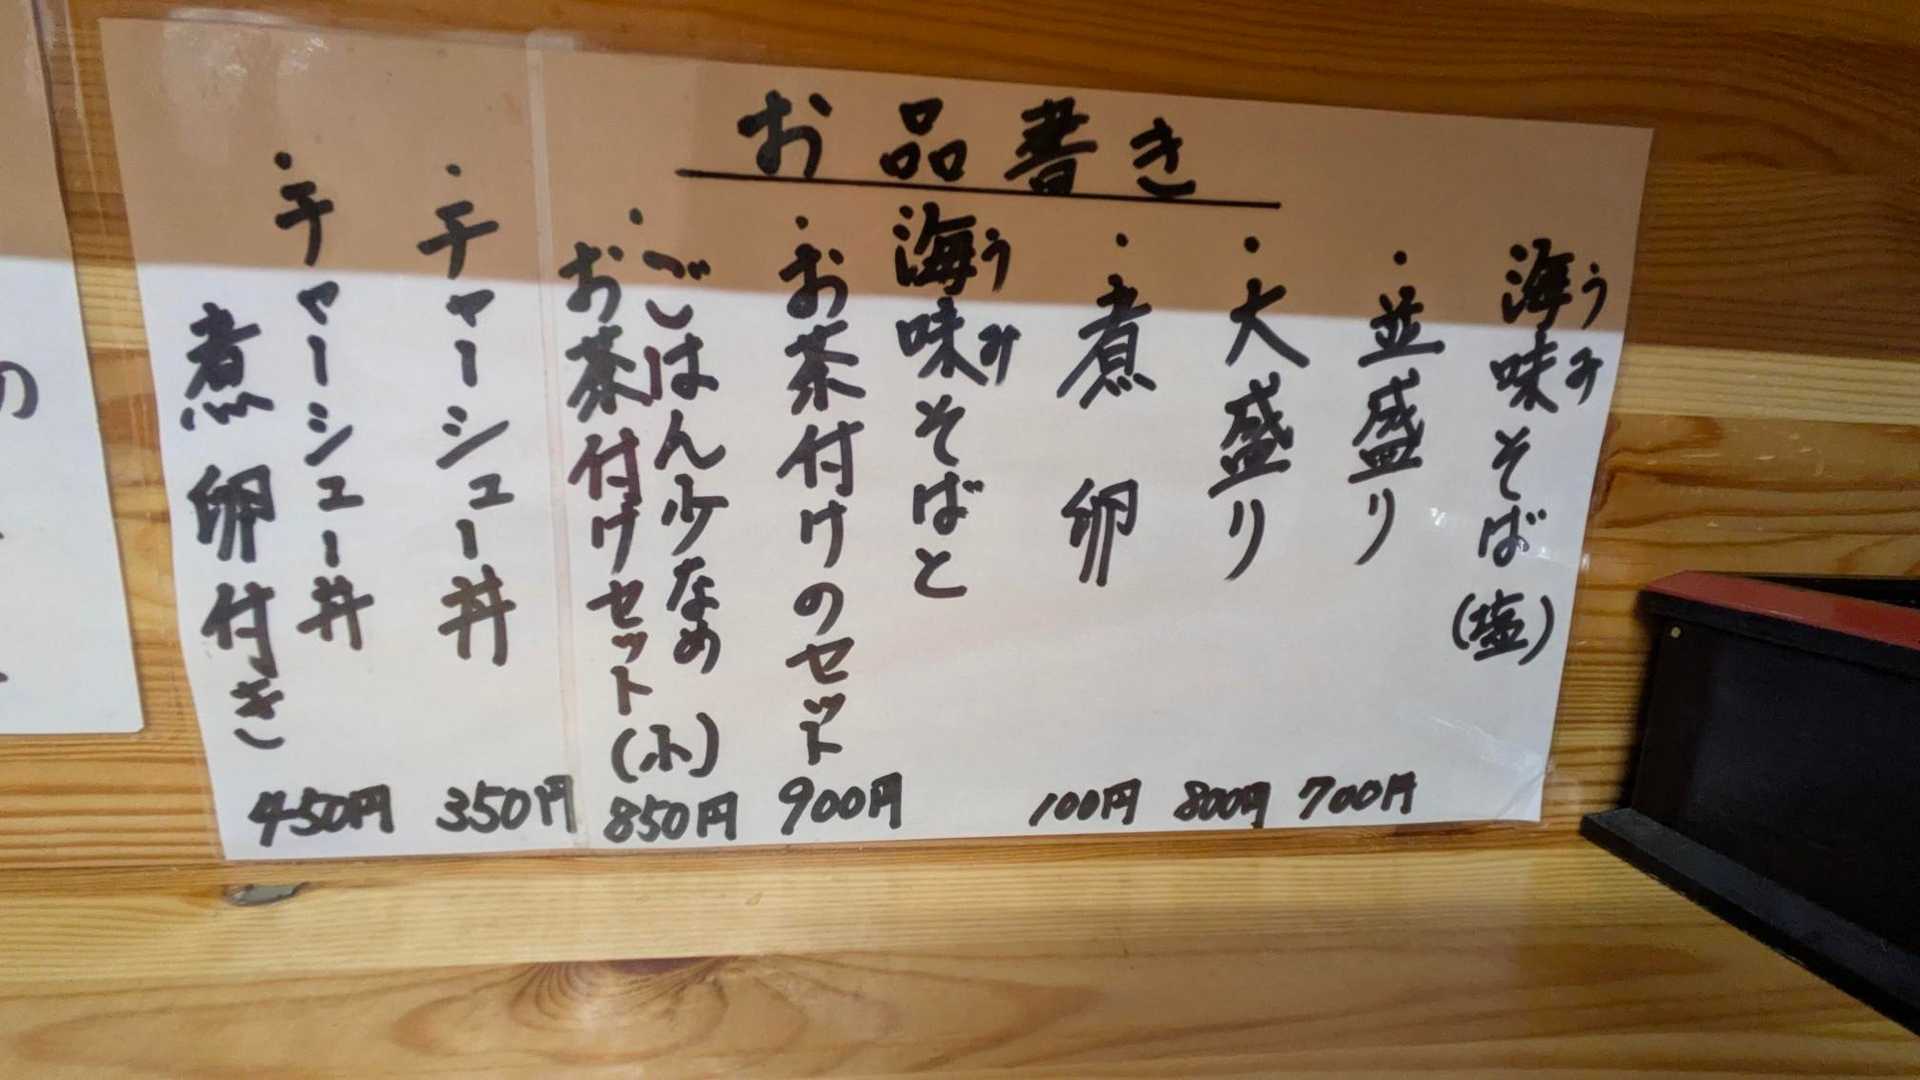 お品書き
海味そば(塩)
うみ
・並盛り 700円
・大盛り 800円
・煮卵 100円
海味そばと
うみ
・お茶付けのセット 900円
・ごはん少なめ
お茶付けセット(小) 850円
・チャーシュー丼 350円
・チャーシュー丼
煮卵付き 450円
の